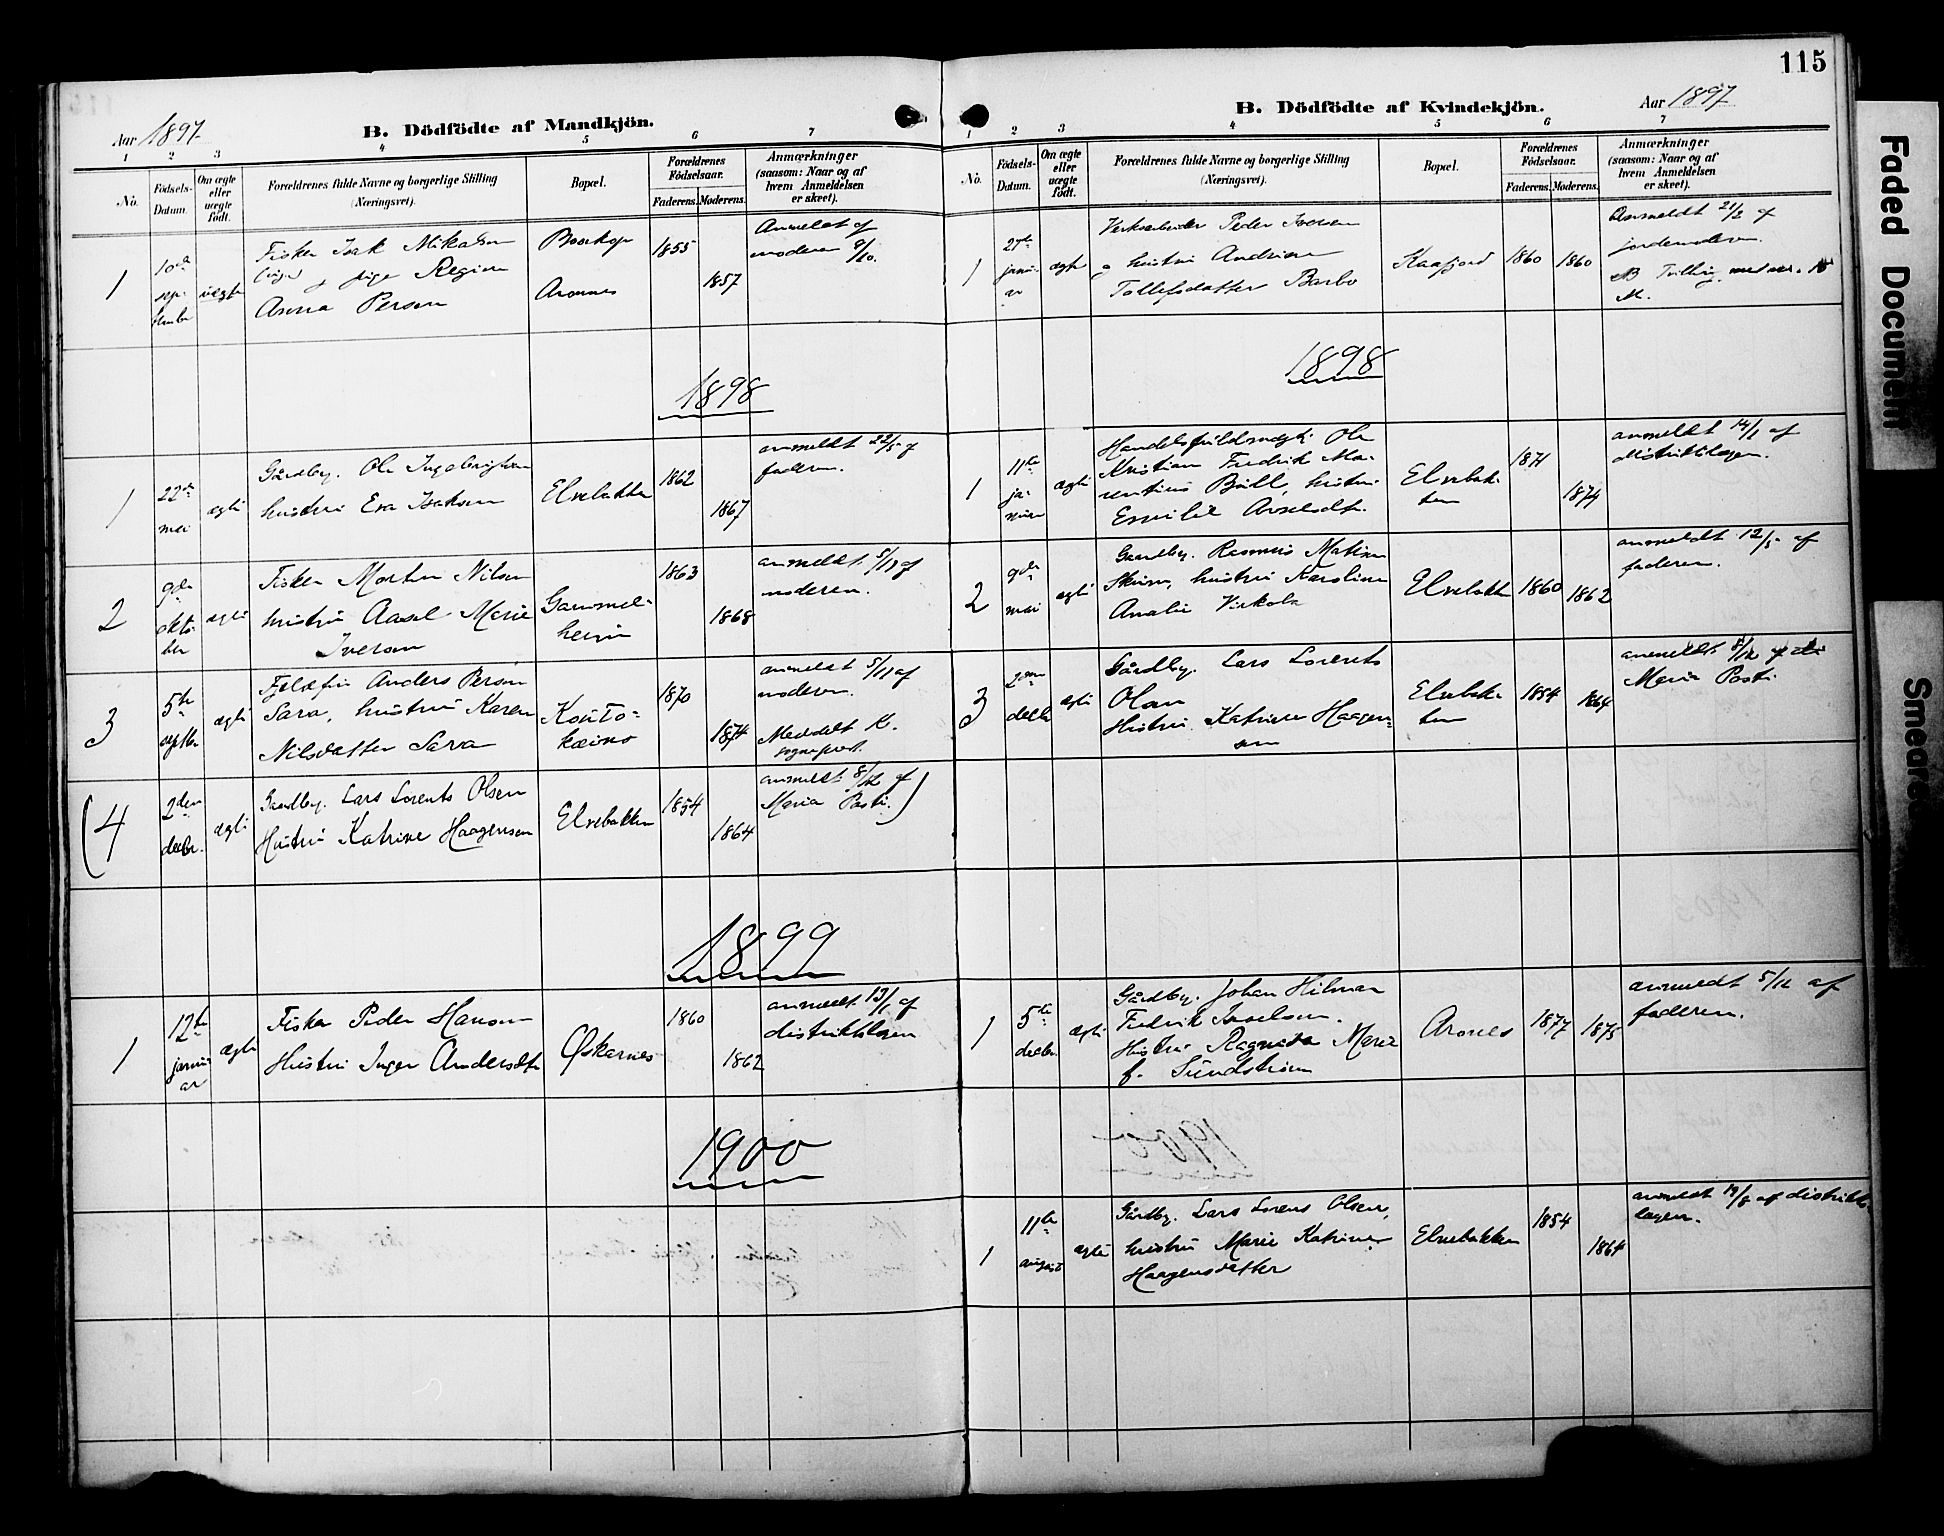 115
Aar 1897
B. Dödfödte af Mandkjön.
1 2 3 4 5 6 7
No.
Födsels-Datum.
Om ægte eller uægte födt.
Forældrenes fulde Navne og borgerlige Stilling
(Næringsvei).
Bopæl.
Forældrenes Födselsaar.
Faderens. Moderens.
Anmærkninger
(saasom: Naar og af
hvem Anmeldelsen
er skeet).
1
10de
september
uægte
Fisker Isak Mikalsen
pige Regine
Anna Persen
Bosekop
Aronnes
1855
1857
Anmeldt af
moderen 9/10.
1898
1
22de
mai
ægte
Gårdbr. Ole Ingebrigtsen
hustru Eva Isaksen
Elvebakken
1862
1867
anmeldt 22/5 af
faderen.
2
9de
oktober
ægte
Fisker Morten Nilsen
hustru Aasel Marie
Iversen
Gammel-
heim
1863
1868
anmeldt af
moderen.
3
5te
septbr
ægte
Anders Persen
Sara, hustru Karen
Nilsdatter Sara
Kouto-
kæino
1870
1874
anmeldt 5/11 af
moderen.
Meddelt K.
sogneprest.
(4
2den
decbr.
ægte
Gaardbr. Lars Lorents Olsen
Hustru Katrine Haagensen
Elvebakken
1854
1864
anmeldt 8/12 af
Maria Posti.)
1899
1
12te
januar
ægte
Fisker Peder Hansen
Hustru Inger Andersdtr
Øskarnes
1860
1862
anmeldt 13/1 af
distriktslægen
1900
B. Dödfödte af Kvindekjön.
Aar 1897
1 2 3 4 5 6 7
No.
Födsels-Datum.
Om ægte eller uægte födt.
Forældrenes fulde Navne og borgerlige Stilling
(Næringsvei).
Bopæl.
Forældrenes Födselsaar.
Faderens. Moderens.
Anmærkninger
(saasom: Naar og af
hvem Anmeldelsen
er skeet).
1
27de
januar
ægte
Verksarbeider Peder Iversen
og hustru Andrine
Tollefsdatter Barbo
Kaafjord
1860
1860
Anmeldt 21/2 af
jordemoderen.
NB Tvilling med
M.
1898
1
11te
januar
ægte
Handelsfuldmægt. Ole
Kristian Fredrik Ma-
rentius Bull, hustru
Emilie Axelsdtr.
Elvebak-
ken
1871
1874
anmeldt 14/1 af
distriktslægen.
2
9de
mai
ægte
Gaardbr. Rasmus Matias
hustru Karoline
Amalie Virkola
Elvebakk
1860
1862
anmeldt 12/5 af
faderen.
3
2den
decbr
ægte
Gårdbr. Lars Lorents
Olsen
Hustru Katrine Haagen-
sen
Elvebak-
ken
1854
1864
anmeldt 8/12 af
Maria Posti
1
5te
decbr.
ægte
Gårdbr. Johan Hilmar
Fredrik
Hustru Ragnida Marie
f. Sundström
Arones
1877
1875
anmeldt 5/12 af
faderen.
1900
1
11te
august
ægte
Gårdbr. Lars Lorens Olsen,
hustru Marie Katrine
Haagensdatter
Elvebakken
1854
1864
anmeldt af distrikts
lægen.
Faded Document
Smeared